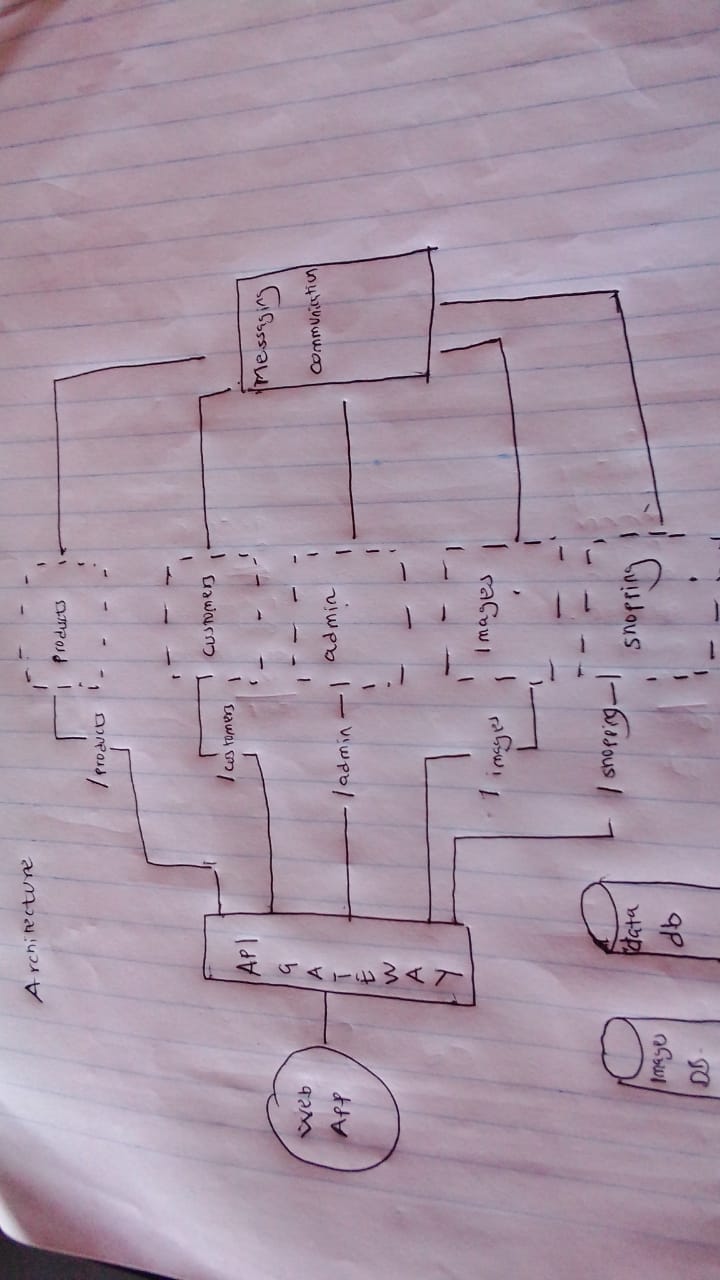 Architecture
Web
App
API
G
A
T
E
W
A
Y
/products
/customers
/admin
/images
/shopping
products
customers
admin
Images
shopping
Messaging
communication
Images
DB.
data
db